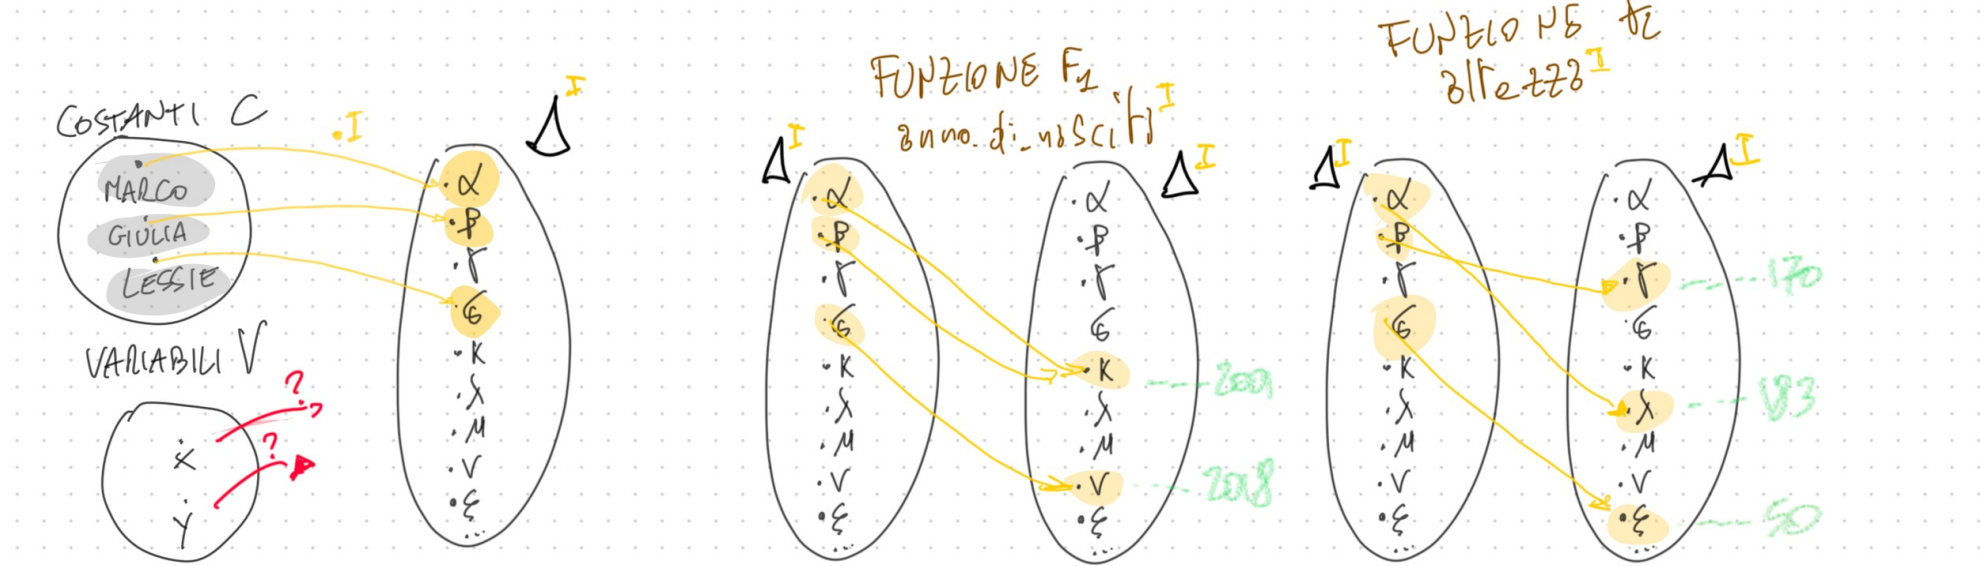 COSTANTI C
.I
Δ I
MARCO
GIULIA
LESSIE
α
β
γ
K
λ
μ
ν
ξ
...
VARIABILI V
X
Y
?
?
FUNZIONE F1
anno_di_nascita I
Δ I
Δ I
α
β
γ
K
λ
μ
ν
ξ
...
α
β
γ
K
λ
μ
ν
ξ
...
2001
2018
FUNZIONE f2
altezza I
Δ I
Δ I
α
β
γ
K
λ
μ
ν
ξ
...
α
β
γ
K
λ
μ
ν
ξ
...
170
183
50